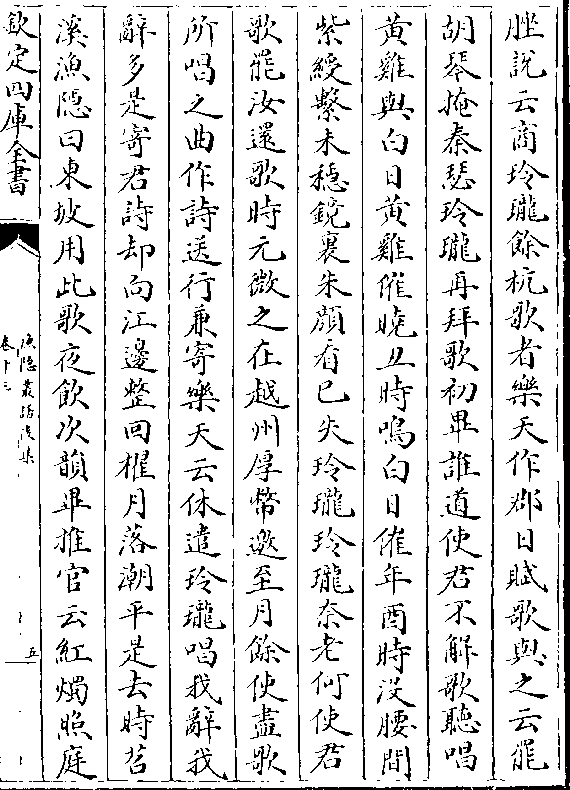 脞說云商玲瓏餘杭歌者樂天作郡日賦歌與之云罷
胡琴掩秦瑟玲瓏再拜歌初畢誰道使君不解歌聽唱
黃雞與白日黃雞催曉丑時鳴白日催年酉時没腰間
紫綬繫未穩鏡裏朱顔看已失玲瓏玲瓏奈老何使君
歌罷汝還歌時元微之在越州厚幣邀至月餘使盡歌
所唱之曲作詩送行兼寄樂天云休遣玲瓏唱我辭我
辭多是寄君詩却向江邊整回櫂月落潮平是去時苕
溪漁隱曰東坡用此歌夜飲次韻畢推官云紅燭照庭
欽定四庫全書
漁隱叢話後集
卷十三
五